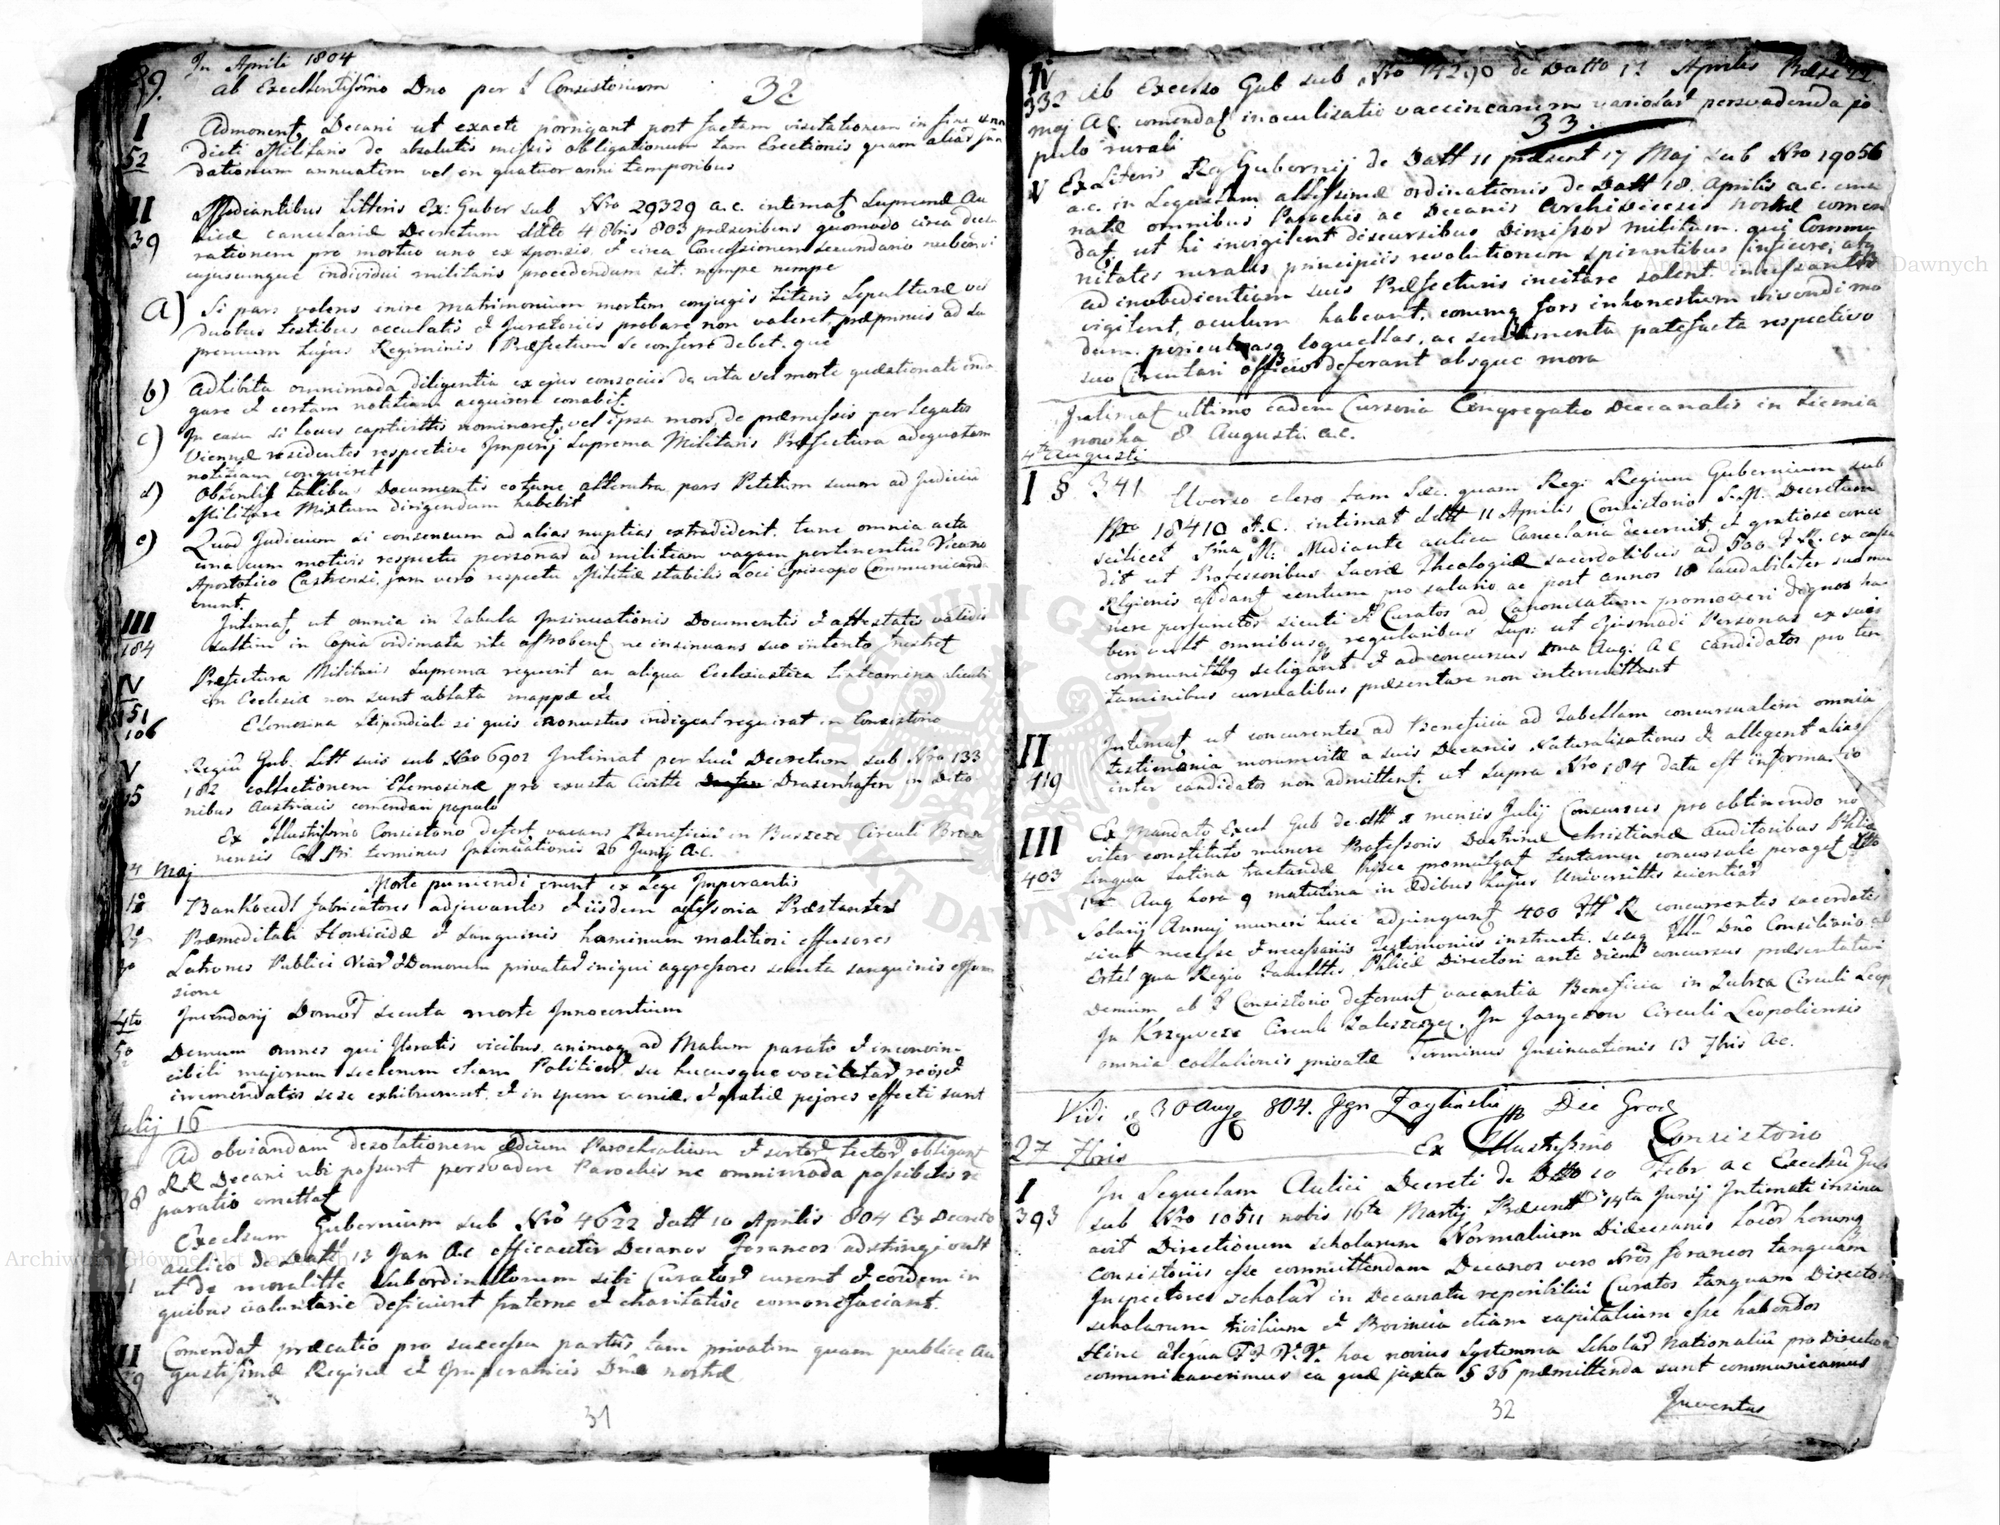 29. In Aprili 1804
ab Excellentissimo Dno per I Consistorium 32
I Admonent Decani ut exacte porrigant post factam visitationem in fine
52 dicti Militaris de absolutis missis obligationum tam Erectionis quam aliar fun
dationum annuatim vel in quatuor anni temporibus
II Mediantibus Litteris Ex: Guber sub Nro 29329 a.c. intimat Supremæ Au
39 licæ cancelariæ Decretum ddtto 4 8bris 803 præscribens quomodo circa decla
rationem pro mortuo uno ex sponsis, et circa Concessionem secundario nubendi
cujuscunque individui militaris procedendum sit. nempe nempe
a) Si pars volens inire matrimonium mortem conjugis Literis Sepulturæ vel
duobus testibus occulatis et Juratoriis probare non valeret, præprimis ad Su
premum hujus Regiminis Præfectum se conferre debet. qui
b) adhibita omnimoda diligentia ex ejus consociis de vita vel morte quæstionati inda
gare et certam notitiam acquirere conabit.
c) In casu si locus captivittis nominaret, vel ipsa mors, de præmissis per Legatos
Viennæ residentes respective Imperij Suprema Militaris Præfectura adequatam
notitiam conquiret
d) Obtentis talibus Documentis eotunc altenutra pars Petitum suum ad Judiciu
Militare Mixtum dirigendum habebit
e) Quod Judicium si consensum ad alias nuptias extradiderit. tunc omnia acta
una cum motivis respectu personar ad militiam vagam pertinentiu Vicario
Apostolico Castrensi, jam vero respectu Militiæ stabilis Loci Episcopo Communicanda
erunt.
III Intimat ut omnia in Tabula Insinuationis Documentis et attestatis validis
184 saltim in Copia vidimata rite approbent, ne insinuans suo intento frustret
IV Præfectura Militaris Suprema requirit an aliqua Ecclesiastica Linteamina alicubi
151 in Ecclesia non sunt ablata mappæ etc
106 Elemosina Stipendiali si quis indiget requirat in Consistorio
V Regiu Gub. Litt suis sub Nro 6902 Intimat per suu Decretum sub Nro 133
95 182 collectionem Elemosinæ pro exusta Civitte Drasenhofen in Ditio
nibus Austriacis comendari populo
Ex Illustrissimo Consistorio defert vacans Beneficiu in Buszcze Circuli Brzeza
nensis Col. Pri. terminus Insinuationis 26 Junij A.C.
24 Maj
Morte puniendi erunt ex Lege Imperantis
1o Bankocedl fabricatores adjuvantes et iisdem accessoria Præstantes
2o Præmeditati Homicidæ et sanguinis hominum malitiosi effusores
3o Latrones Publici Viar et Domorum privatar iniqui aggressores secuta sanguinis effusi
sione
4to Incendarij Domor secuta morte Innocentium
5o Demum omnes qui iteratis vicibus, animoq ad Malum parato et inconvin
cibili majorum scelerum etiam Politicor, su hucusque vocitatar reos et
irremendatos sese exhibuerunt, et in spem veniæ, et gratiæ pejores effecti sunt
Julij 16
Ad obviandam desolationem ædium Parochialium et sartor tector, obligant
RR Decani ubi possunt persvadere Parochis ne omnimoda possibilis re
28 paratio omittat
Excelsum Gubernium sub Nro 4622 datt 10 Aprilis 804 Ex Decreto
aulico de Datt 13 Jan A.c. efficaciter Decanos foraneos adstringi vult
ut de moralitte Subordinattorum sibi Curator curent et eosdem in
quibus voluntarie deficiunt fraterne et charitative comonefaciant.
II Comendat præcatio pro successu partus tam privatim quam publice Au
29 gustissimæ Reginæ et Imperatricis Dnæ nostræ
31
IV ab Excelso Gub sub Nro 14290 de Datto 12 Aprilis Præse 22
332 maj A.C. comendat inoculisatio vaccinearum variolar persvadenda po
pulo rurali 33.
V Ex Literis Reg Gubernij de Datt 11 præsent 17 Maj sub Nro 19056
a.c. in Sequelam altissimæ ordinationis de Datt 18. Aprilis a.c. ema
natæ omnibus Parochis ac Decanis Archidiecesis nostræ comen
dat, ut hi invigilent discursibus Dimissor militum. qui Commu
nitates rurales principiis revolutionem spirantibus inficere, atq
ad inobedientiam suis Præfecturis incitare solent. incessanter
vigilent, oculum habeant, eorumq fors inhonestum vivendi mo
dum, periculosasq loquellas, ac sentimenta patefacta respectivo
suo Circulari officio deferant absque mora
Intimat ultimo eadem Cursoria Congregatio Deccanalis in Siemia
nowka 8 Augusti a.c.
4ta Augusti
I § 341 Universo clero tam Sæc. quam Reg: Regium Gubernium sub
Nro 18410 A.C. intimat ddtt 11 Aprilis Consistorio S.M. Decretum
scilicet Sma M. Mediante aulica Cancelaria decernit, et gratiose conce
dit ut Professoribus Sacræ Theologiæ sacerdotibus ad 500 f R. ex cassa
Rlgionis addant centum pro salario ac post annos 10 laudabiliter suo mu
nere perfunctos sicuti et Curatos ad Canonicatum promoveri dignos ha
beri vult omnibusq regularibus Sup: ut Ejusmodi Personas ex suis
communittbq seligant et ad concursus 1ma Aug: AC candidatos pro ten
taminibus cursualibus præsentare non intermittant
II Intimat ut concurentes ad Beneficia ad Tabellam concursualem omnia
119 testimonia moruvitæ a suis Decanis Naturalisationes et allegent alias
inter candidatos non admittent, ut supra Nro 184 data est informatio
III Ex Mandato Excel Gub de dtt 2 mensis Julij Concursus pro obtinendo no
403 viter constituto munere Professoris Doctrinæ christianæ auditoribus Phlie
lingua Latina tractandæ hisce promulgat tentamen concursale peraget
1a Aug hora 9 matutina in ædibus hujus Universittis scientiar
Salarij Annuj muneri huic adjungunt 400 R concurrentes sacerdotes
sicut necesse et necessariis Testimoniis instructi, seseq Illu Dno Consiliario
Ertel qua Regio facultts Phliæ Directori anti diem concursus præsentaturi
Demum ab I Consistorio deferunt vacantia Beneficia in Zubrza Circuli Leop
In Krzywcze Circuli Zaleszczyc, In Jaryczow Circuli Leopoliensis
omnia collationis privatæ Terminus Insinuationis 13 7bris A.c.
Vidi 30 Aug 804. Ign Zagliński Dec Grod
27 7bris Ex Illustrissimo Consistorio
I In Sequelam Aulici Decreti de Dtto 10 Febr a.c Excelsu Gub
393 sub Nro 10511 nobis 16ta Martij Præsentt 14ta Junij Intimati insinu
avit Directionem scholarum Normalium Diæcesanis locor horumq
Consistoriis esse committendam Decanos vero Nros foraneos tanquam
Inspectores scholar in Decanatu reperibiliu Curatos tanquam Directores
scholarum trivilium et Provincia etiam capitalium esse habendos
Hinc aliqua hac novius Systemma Scholar Nationaliu pro Directione
comunicaverimus ea quæ juxta § 36 præmittenda sunt communicamus
32 Juventus
Archiwum Główne Akt Dawnych
Archiwum Główne Akt Dawnych
ARCHIWUM GŁÓWNE AKT DAWNYCH